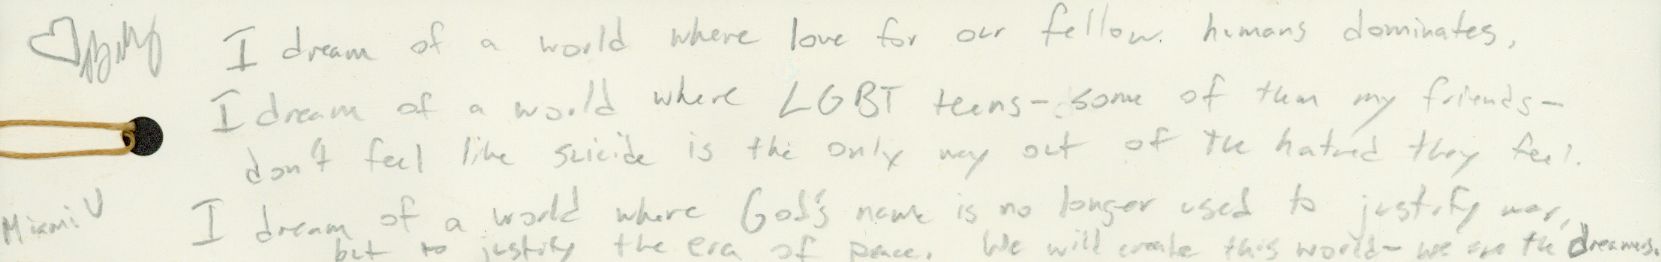 I dream of a world where love for our fellow humans dominates,
I dream of a world where LGBT teens - some of them my friends -
don't feel like suicide is the only way out of the hatred they feel.
I dream of a world where God's name is no longer used to justify war,
but to justify the era of peace. We will create this world - we are the dreamers.
Miami U